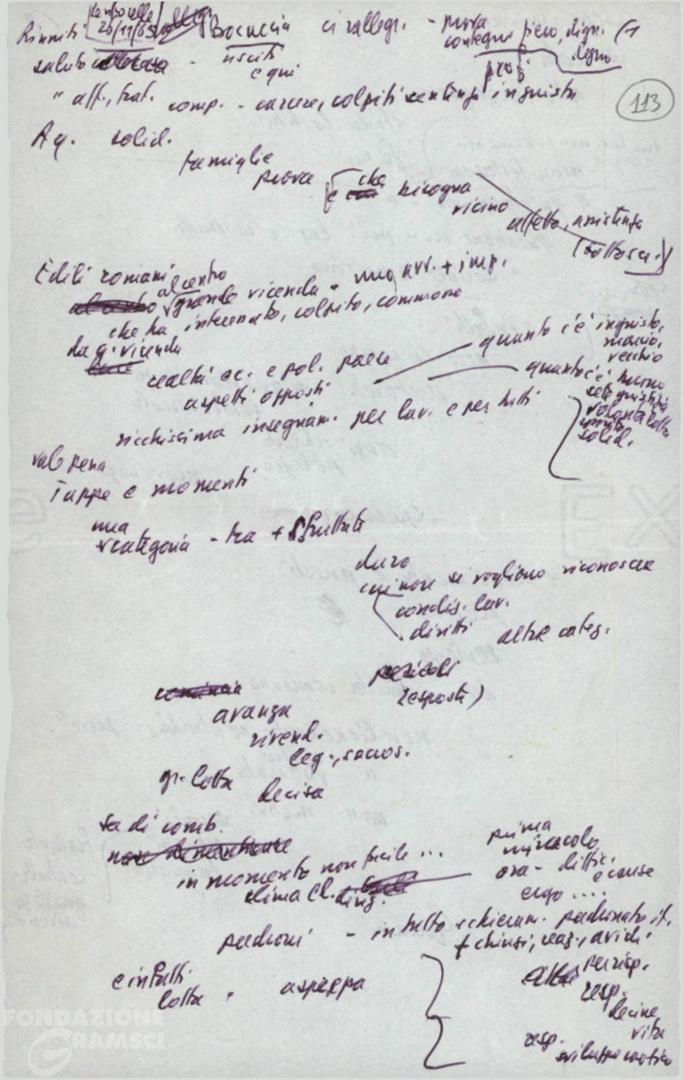 Riuniti 20/11/65 Boccuccia ci rallegr. - prova
contegno fiero, dign.
saluto - usciti degno
e qui prof.
" aff., frat. comp. - carcere, colpiti sentenza ingiusta
113
Ag. solid.
famiglie
prova e che bisogna
vicino
affetto, assistenza
(sottoscr.)
Edili romani al centro
grande vicenda - avv. + imp.
che ha interessato, colpito, commosso
da q. vicenda
realtà ec. e pol. paese
aspetti opposti
quanto c'è ingiusto,
marcio,
vecchio
quanto c'è buono
sete giustizia
volontà lotta
unità
solid.
ricchissima insegnam. per lav. e per tutti
vale pena
Tappe e momenti
una
categoria - tra + sfruttate
duro
cui non si vogliono riconoscere
condiz. lav.
diritti altre categ.
pericoli
(esposti)
comincia
avanza
rivend.
leg., sacros.
gr. lotta
decisa
sa di comb.
non dimenticare
in momento non facile ...
clima
prima
miracolo
ora - diffic.
e cause
ergo ....
padroni - in tutto schieram. padronato it.
+ chiusi, reaz., avidi
e infatti
lotta " aspra
resp.
decine
vita
resp.
sviluppo
FONDAZIONE
GRAMSCI